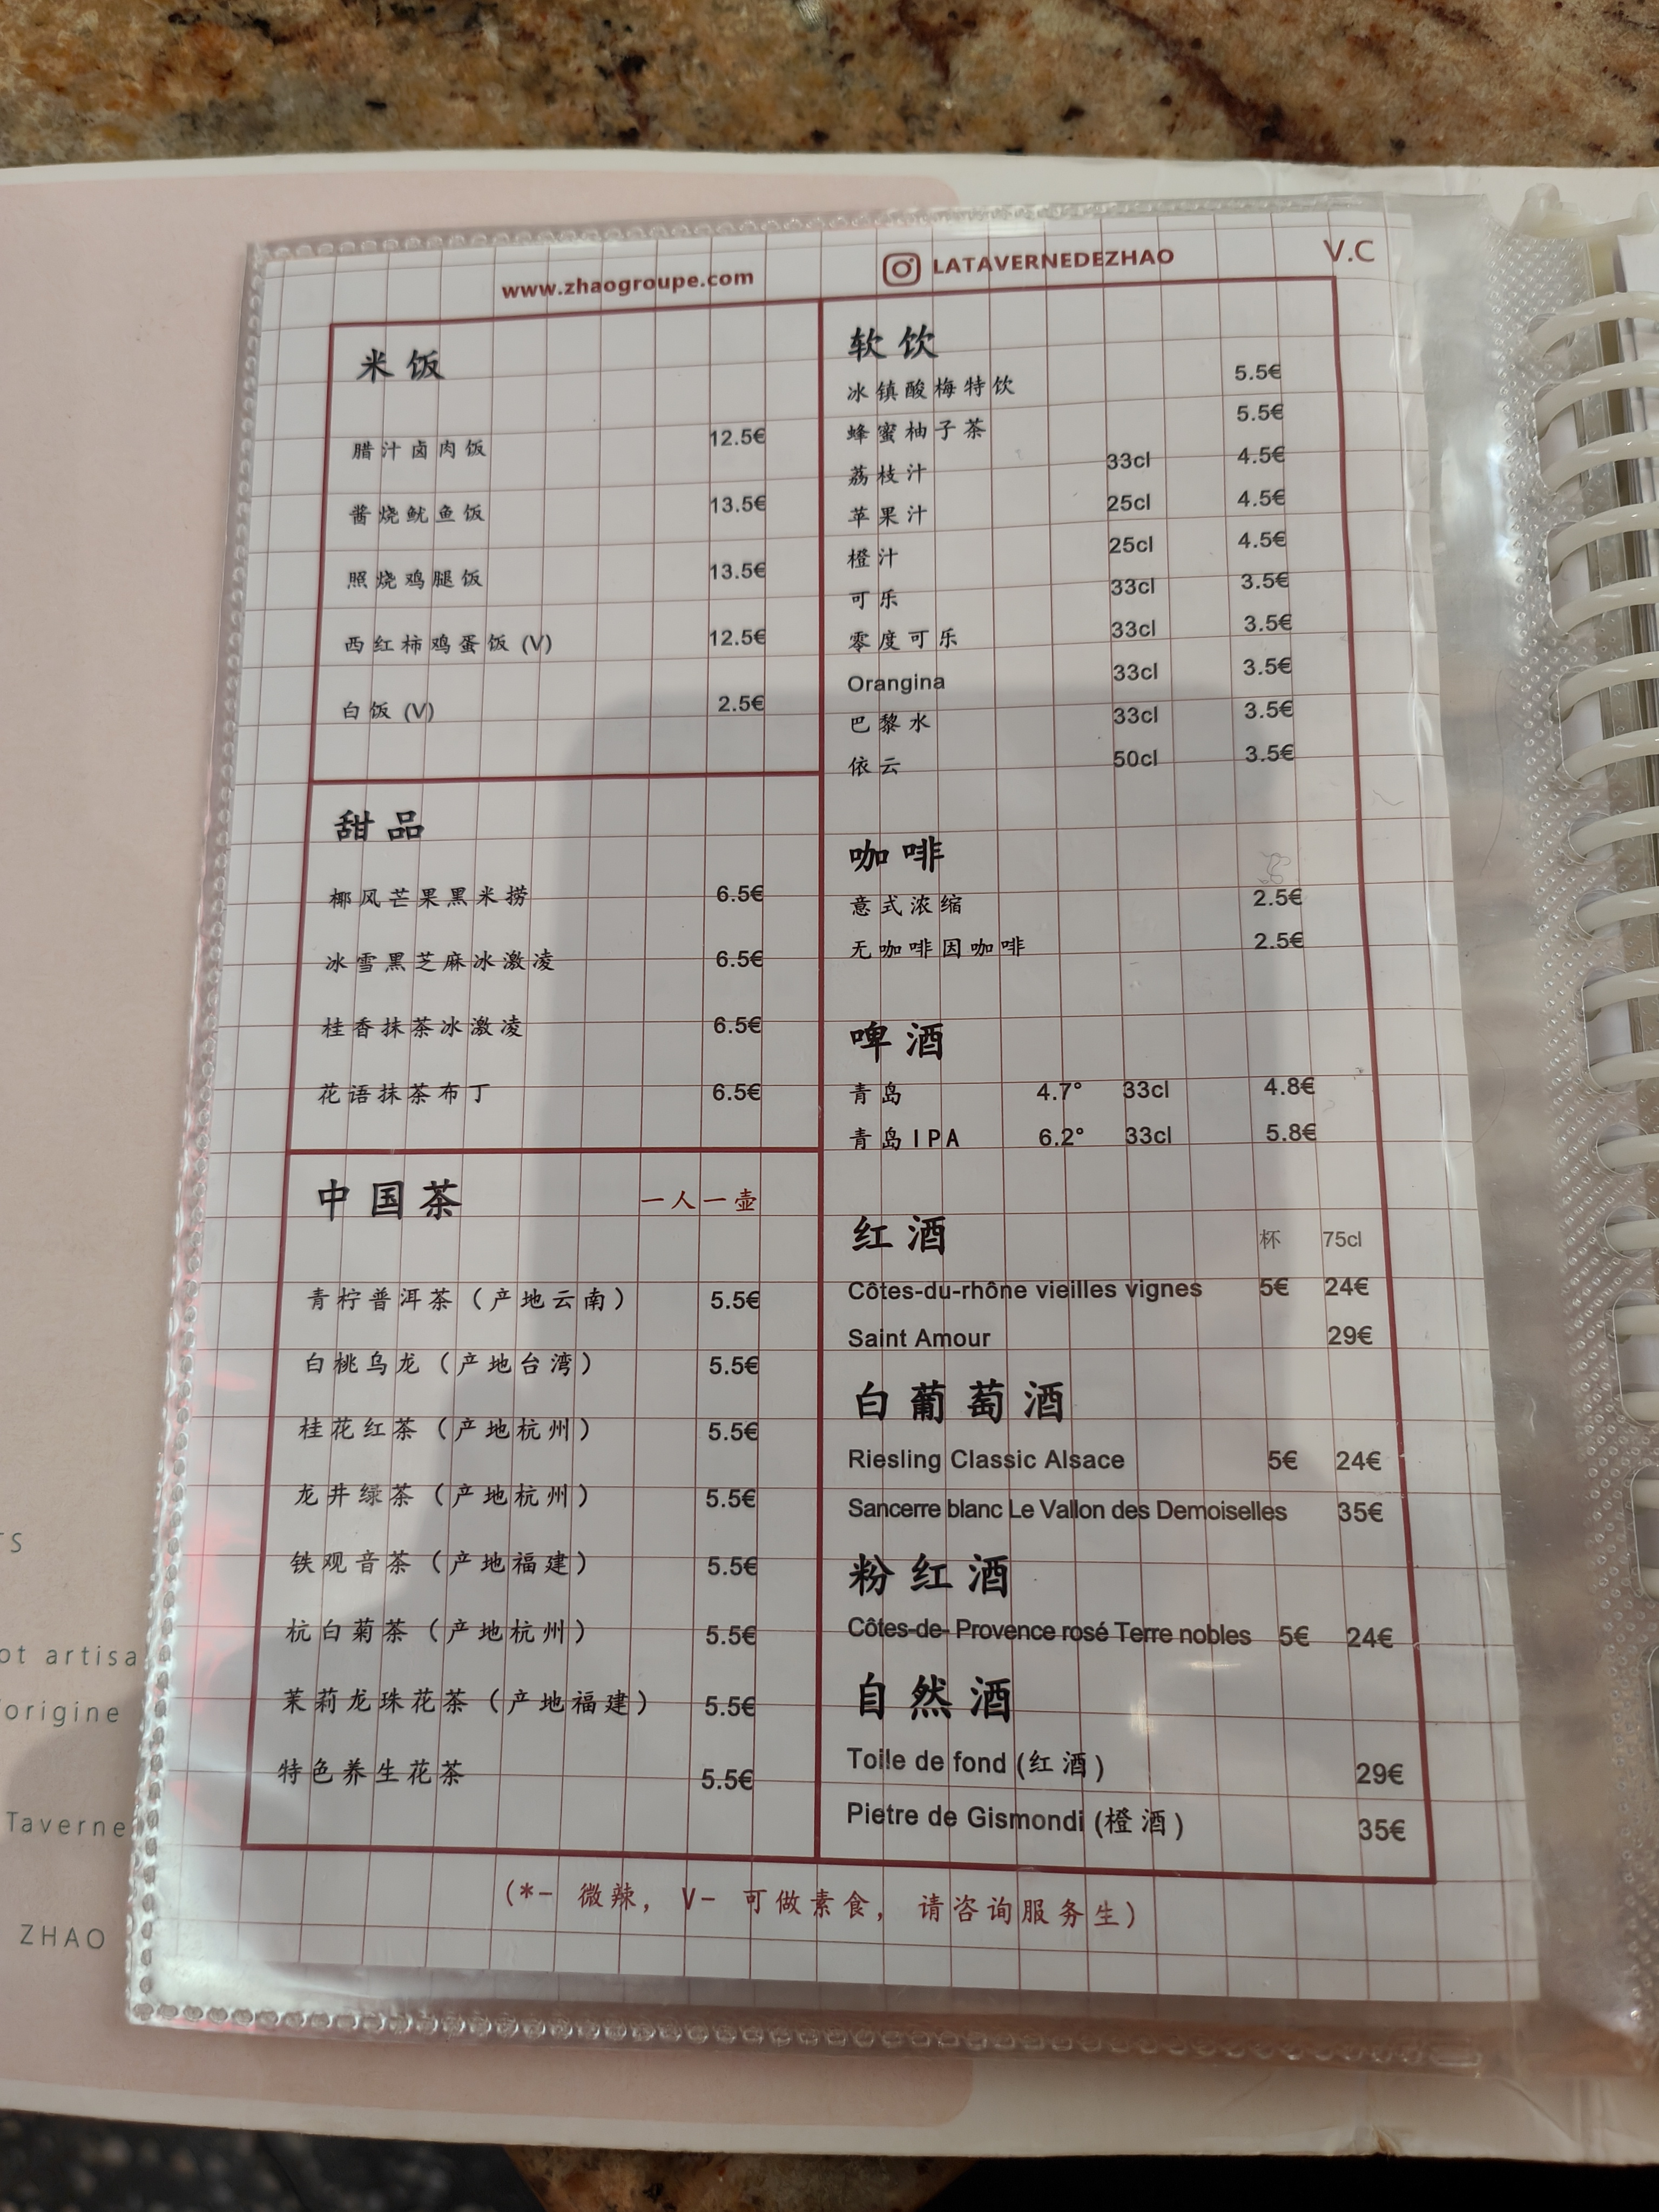 www.zhaogroupe.com
LATAVERNEDEZHAO
V.C
米饭
腊汁卤肉饭 12.5€
酱烧鱿鱼饭 13.5€
照烧鸡腿饭 13.5€
西红柿鸡蛋饭 (V) 12.5€
白饭 (V) 2.5€
甜品
椰风芒果黑米捞 6.5€
冰雪黑芝麻冰激凌 6.5€
桂香抹茶冰激凌 6.5€
花语抹茶布丁 6.5€
中国茶 一人一壶
青柠普洱茶（产地云南） 5.5€
白桃乌龙（产地台湾） 5.5€
桂花红茶（产地杭州） 5.5€
龙井绿茶（产地杭州） 5.5€
铁观音茶（产地福建） 5.5€
杭白菊茶（产地杭州） 5.5€
茉莉龙珠花茶（产地福建） 5.5€
特色养生花茶 5.5€
软饮
冰镇酸梅特饮 5.5€
蜂蜜柚子茶 5.5€
荔枝汁 33cl 4.5€
苹果汁 25cl 4.5€
橙汁 25cl 4.5€
可乐 33cl 3.5€
零度可乐 33cl 3.5€
Orangina 33cl 3.5€
巴黎水 33cl 3.5€
依云 50cl 3.5€
咖啡
意式浓缩 2.5€
无咖啡因咖啡 2.5€
啤酒
青岛 4.7° 33cl 4.8€
青岛IPA 6.2° 33cl 5.8€
红酒 杯 75cl
Côtes-du-rhône vieilles vignes 5€ 24€
Saint Amour 29€
白葡萄酒
Riesling Classic Alsace 5€ 24€
Sancerre blanc Le Vallon des Demoiselles 35€
粉红酒
Côtes-de- Provence rosé Terre nobles 5€ 24€
自然酒
Toile de fond (红酒) 29€
Pietre de Gismondi (橙酒) 35€
(*- 微辣, V- 可做素食, 请咨询服务生)
TS
ot artisa
origine
Taverne
ZHAO